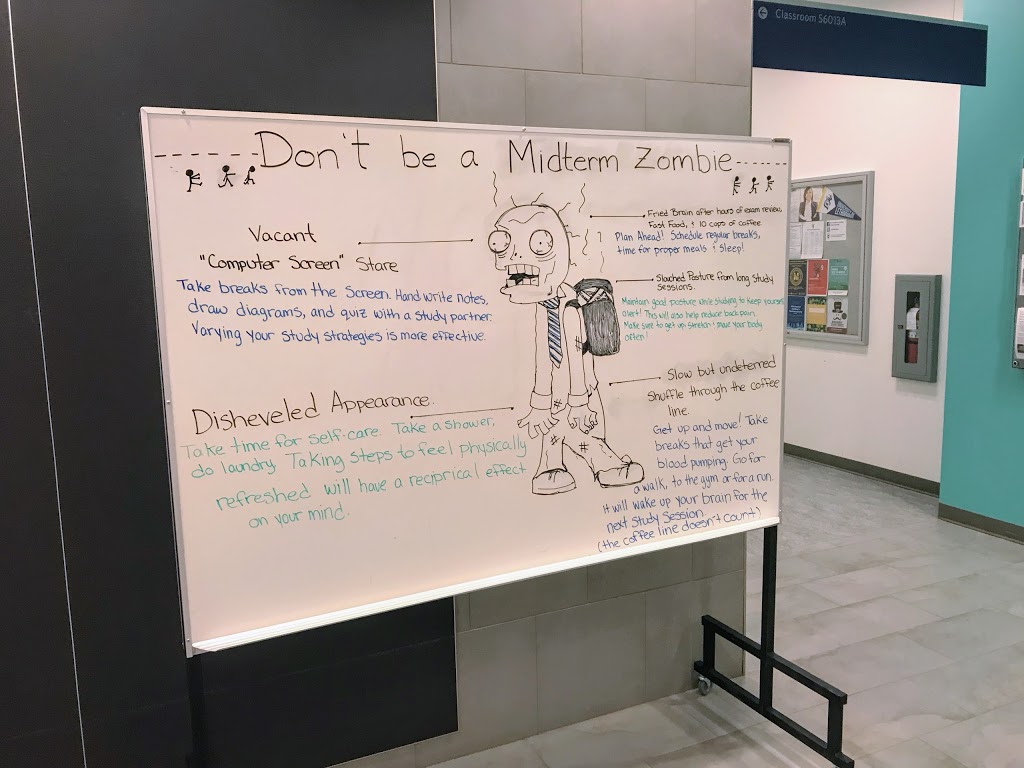 Classroom S6013A
Don't be a Midterm Zombie
Vacant
"Computer Screen" Stare
Take breaks from the screen. Hand write notes,
draw diagrams, and quiz with a study partner.
Varying your study strategies is more effective.
Disheveled Appearance.
Take time for self-care. Take a shower,
do laundry. Taking steps to feel physically
refreshed will have a reciprical effect
on your mind.
Fried Brain after hours of exam review,
Fast Food, + 10 cups of coffee
Plan Ahead! Schedule regular breaks,
time for proper meals + sleep!
Slached Posture from long study
sessions.
Maintain good posture while studying to keep yourself
alert! This will also help reduce back pain.
Make sure to get up, stretch + move your body
often!
Slow but undeterred
Shuffle through the coffee
line.
Get up and move! Take
breaks that get your
blood pumping. Go for
a walk, to the gym or for a run.
It will wake up your brain for the
next study session.
(the coffee line doesn't count)